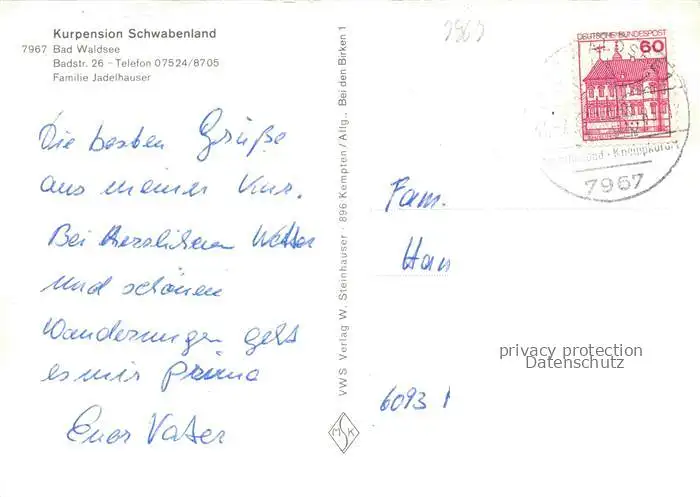 Kurpension Schwabenland
7967 Bad Waldsee
Badstr. 26 - Telefon 07524/8705
Familie Jadelhauser
Die besten Grüße
aus meiner Kur.
Bei herrlichem Wetter
und schönen
Wanderungen geht
es mir prima
Euer Vater
VWS Verlag W. Steinhauser · 896 Kempten / Allg. Bei den Birken 1
MSK
DEUTSCHE BUNDESPOST
60
Kneippkurort
7967
Fam.
Han
6093
privacy protection
Datenschutz